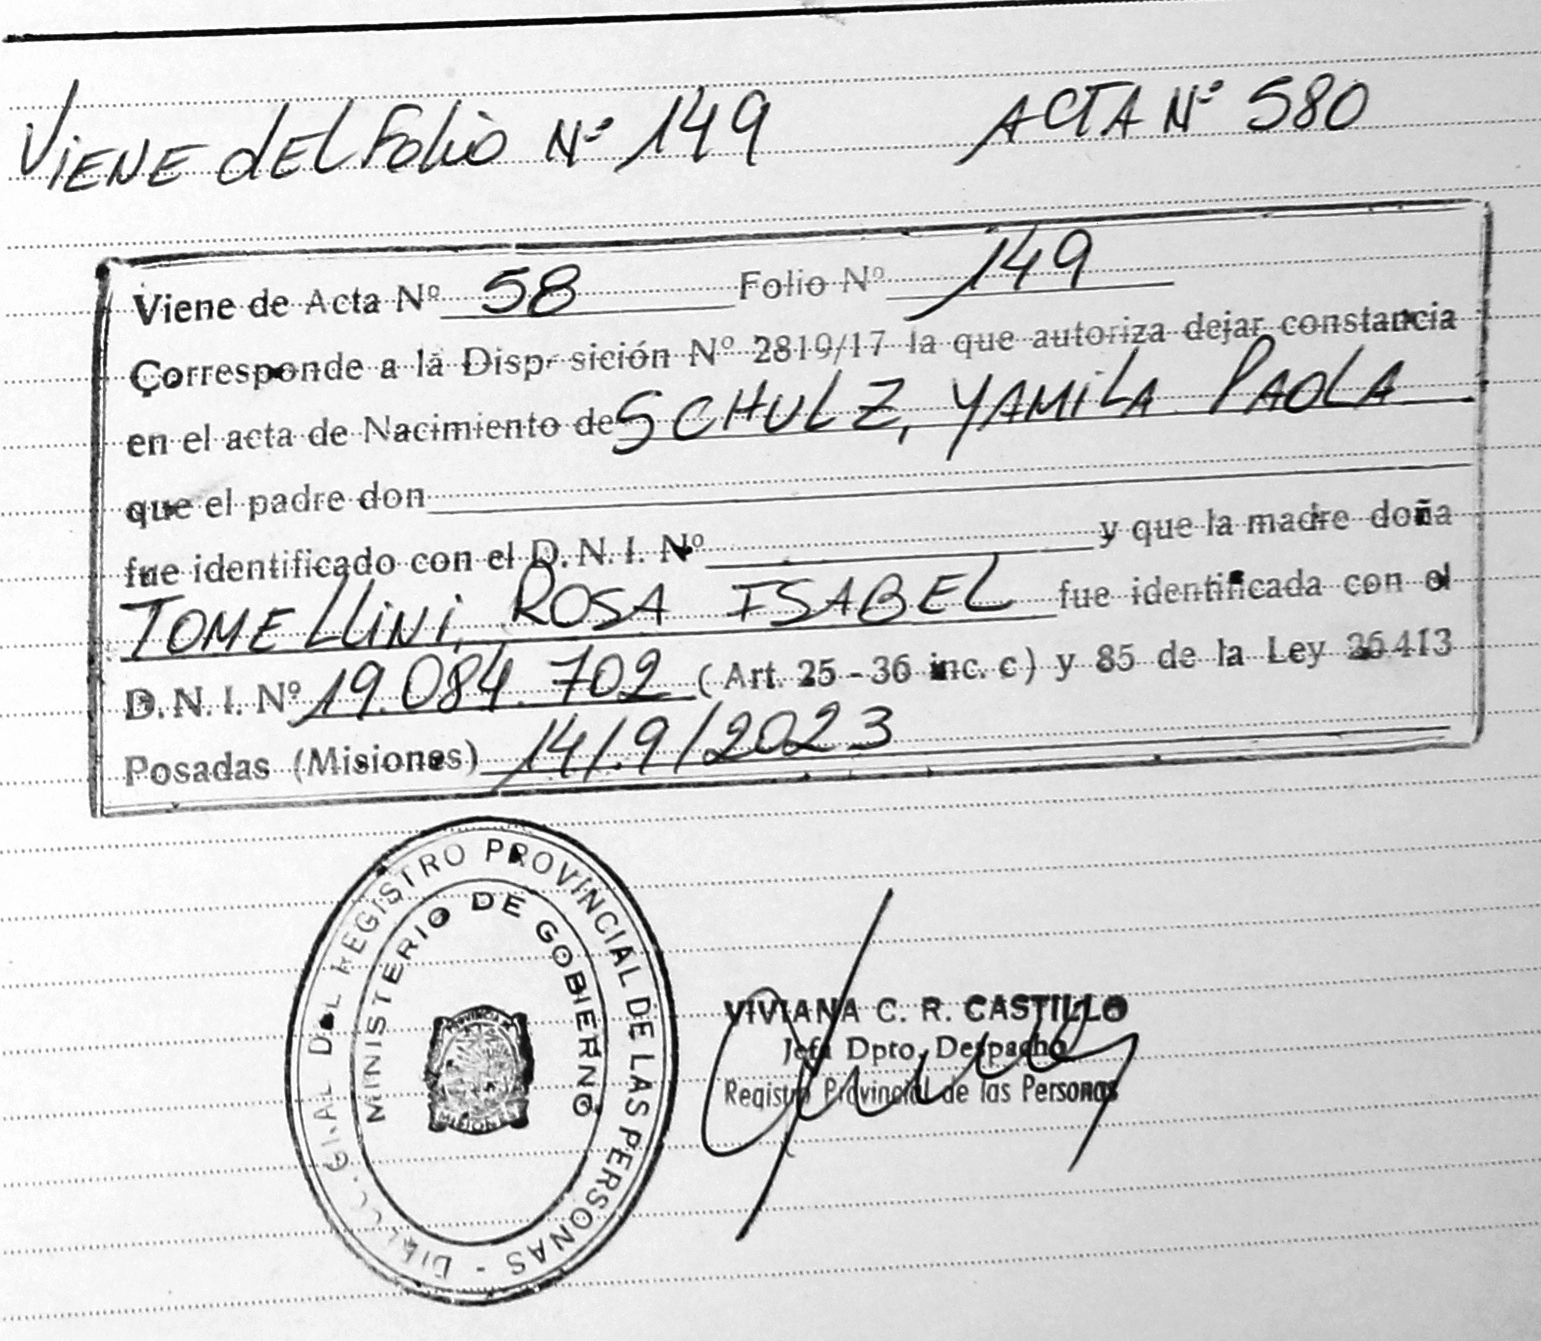 VIENE dEL Folio Nº 149 ACTA Nº 580
Viene de Acta Nº 58 Folio Nº 149
Corresponde a la Disposición Nº 2819/17 la que autoriza dejar constancia
en el acta de Nacimiento de SCHULZ, YAMILA PAOLA
que el padre don
fue identificado con el D. N. I. Nº y que la madre doña
TOMELLINI, ROSA ISABEL fue identificada con el
D. N. I. Nº 19.084.702 (Art. 25 - 36 inc. c) y 85 de la Ley 26413
Posadas (Misiones) 14/9/2023
DIRECC. GRAL DEL REGISTRO PROVINCIAL DE LAS PERSONAS -
MINISTERIO DE GOBIERNO
PROVINCIA
MISIONES
VIVIANA C. R. CASTILLO
Jefa Dpto. Despacho
Registro Provincial de las Personas